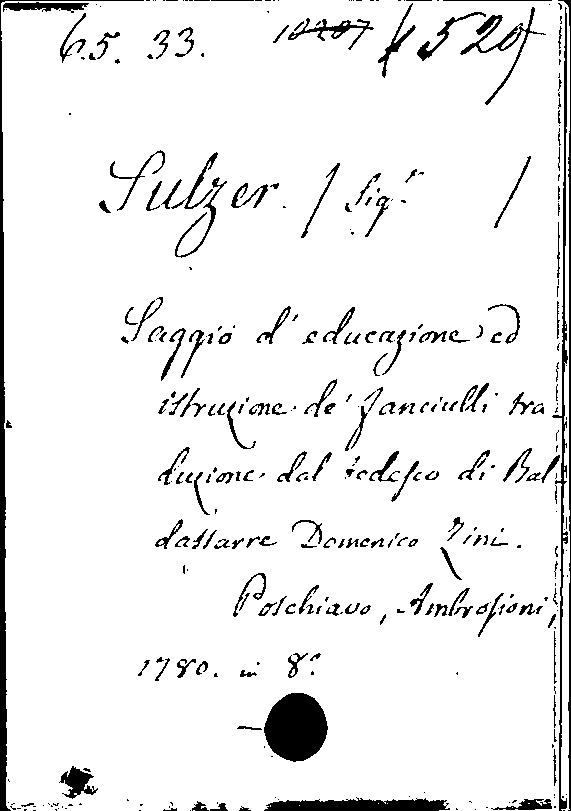 65. 33. 10207 (1520)
Sulzer. / Sigr. /
Saggio d' educazione ed
istruzione de' fanciulli tra-
duzione dal tedesco di Bal-
dassarre Domenico Zini.
Poschiavo, Ambrosioni,
1780. in 8°